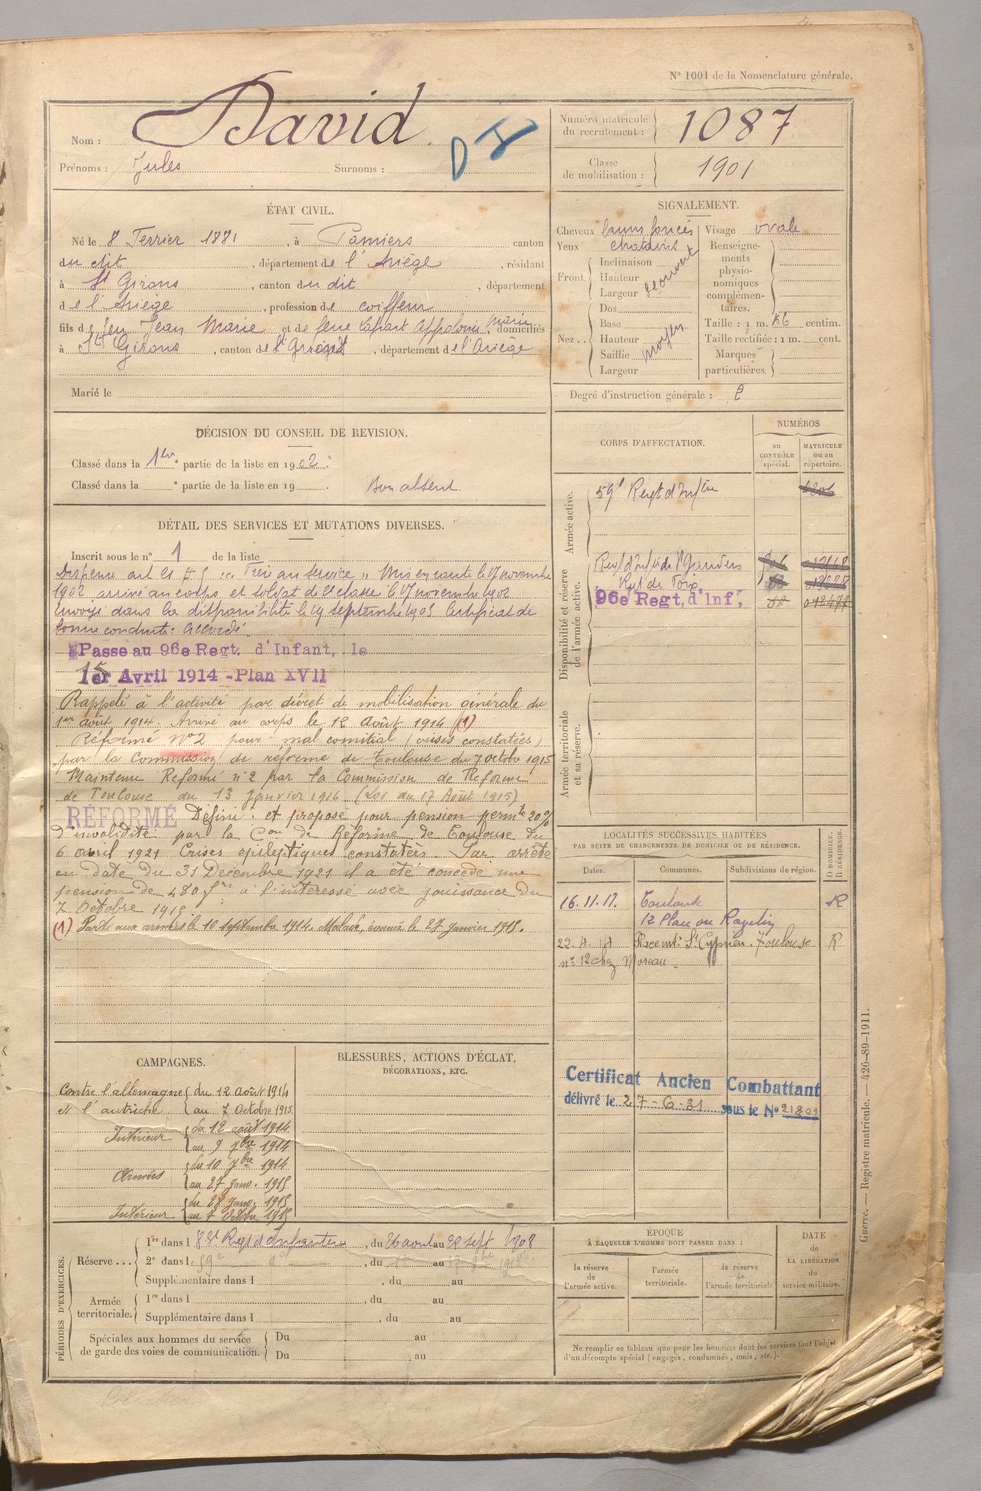 N° 1001 de la Nomenclature générale.
Nom : David
Prénoms : Jules Surnoms :
D
Numéro matricule du recrutement : 1087
Classe de mobilisation : 1901
ÉTAT CIVIL.
Né le 8 Fevrier 1881, à Pamiers, canton
du dit, département de l'Ariège, résidant
à St Girons, canton du dit, département
de l'Ariège, profession de coiffeur
fils de feu Jean Marie et de feue Lafart Appolonie Marie, domiciliés
à St Girons, canton de, département de l'Ariège
Marié le
SIGNALEMENT.
Cheveux bruns foncés
Yeux chatains
Front Inclinaison
Hauteur
Largeur
Nez Dos
Base
Hauteur
Saillie moyen
Largeur
Visage ovale
Renseignements physionomiques complémentaires.
Taille : 1 m. 56 centim.
Taille rectifiée : 1 m. cent.
Marques particulières.
Degré d'instruction générale : 2
DÉCISION DU CONSEIL DE REVISION.
Classé dans la 1ère partie de la liste en 1902.
Classé dans la e partie de la liste en 19 . Bon absent
DÉTAIL DES SERVICES ET MUTATIONS DIVERSES.
Inscrit sous le n° 1 de la liste
Dispensé art 21 au service Mis en route le 17 novembre
1902, arrivé au corps et soldat de 2e classe le 17 novembre 1902
Envoyé dans la disponibilité le 19 septembre 1903 Certificat de
bonne conduite : Accordé
Passe au 96e Regt. d'Infant. le
15 Avril 1914 - Plan XVII
Rappelé à l'activité par décret de mobilisation générale du
1er août 1914. Arrivé au corps le 12 Août 1914 (1)
Réformé N°2 pour mal comitial (crises constatées)
par la Commission de réforme de Toulouse du 7 octobre 1915
Maintenu Réformé n°2 par la Commission de Réforme
de Toulouse du 13 Janvier 1916 (Loi du 17 Août 1915)
RÉFORMÉ Définif et proposé pour pension permte 20%
d'invalidité par la Con de Réforme de Toulouse du
6 avril 1921 Crises épileptiques constatées. Par arrêté
en date du 31 Décembre 1921 il a été concédé une
pension de 480 frs à l'intéressé avec jouissance du
7 Octobre 1915
(1) Parti aux armées le 10 septembre 1914. Malade, évacué le 27 janvier 1915.
CORPS D'AFFECTATION.
NUMÉROS
au contrôle spécial.
matricule ou au répertoire.
Armée active.
59e Regt d'Inftie
Disponibilité et réserve de l'armée active.
Regt d'Infie de St Gaudens
Rgt de Foix
96e Regt. d'Inf.
Armée territoriale et sa réserve.
LOCALITÉS SUCCESSIVES HABITÉES
PAR SUITE DE CHANGEMENTS DE DOMICILE OU DE RÉSIDENCE.
Dates. Communes. Subdivisions de région. D. DOMICILE. R. RÉSIDENCE.
16.11.17. Toulouse R
12 Place
22.4.18 St Cyprien. Toulouse R
n° 12 chez Moreau
Certificat Ancien Combattant
délivré le 27-6-31 sous le N° 21801
CAMPAGNES.
Contre l'allemagne du 12 Août 1914
et l'autriche au 7 Octobre 1915
Intérieur du 12 août 1914
au 9 7bre 1914
Armées du 10 7bre 1914
au 27 Janv. 1915
Intérieur du 28 Janv. 1915
au 7 Octobre 1915
BLESSURES, ACTIONS D'ÉCLAT,
DÉCORATIONS, ETC.
PÉRIODES D'EXERCICES.
Réserve 1re dans l 88e Regt d'Infanterie, du 26 avril au 22 Sept 1908
2e dans le 59e, du au
Supplémentaire dans l , du au
Armée territoriale. 1re dans l , du au
Supplémentaire dans l , du au
Spéciales aux hommes du service de garde des voies de communication. Du au
Du au
ÉPOQUE
À LAQUELLE L'HOMME DOIT PASSER DANS :
la réserve de l'armée active.
l'armée territoriale.
la réserve de l'armée territoriale
DATE de LA LIBÉRATION du service militaire.
Ne remplir ce tableau que pour les hommes dont les services font l'objet
d'un décompte spécial (engagés, condamnés, omis, etc.).
Guerre. — Registre matricule. — 426-89-1911.